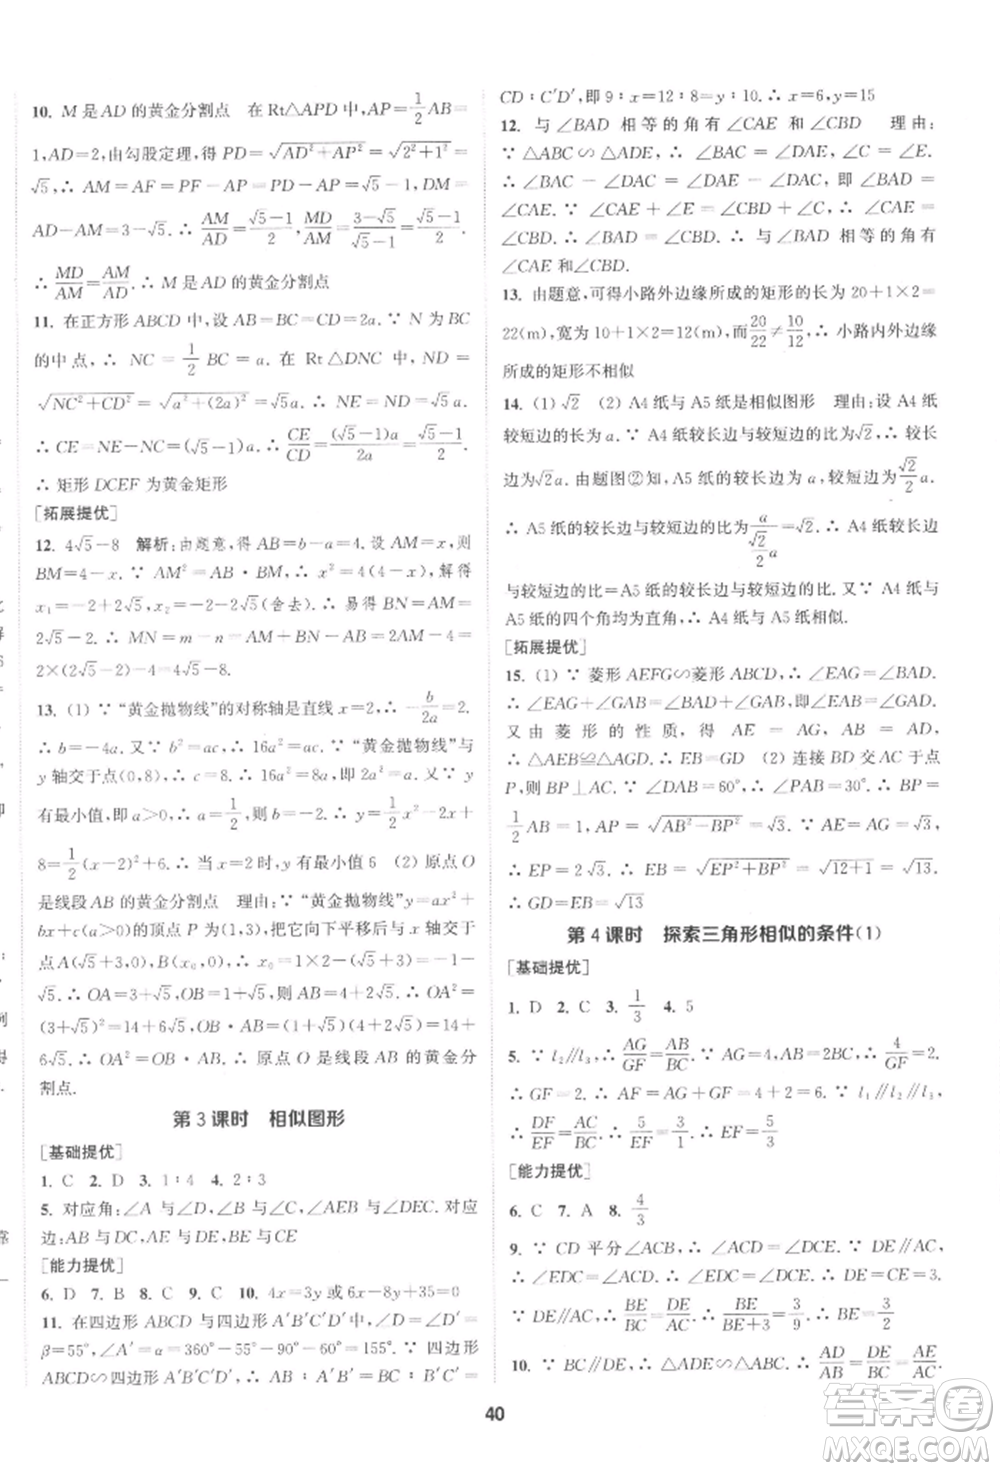 10. M 是 AD 的黄金分割点　在 Rt△APD 中,AP=1/2 AB=
1,AD=2,由勾股定理,得 PD=√(AD²+AP²)=√(2²+1²)=
√5,∴ AM=AF=PF-AP=PD-AP=√5-1,DM=
AD-AM=3-√5.∴ AM/AD=(√5-1)/2,MD/AM=(3-√5)/(√5-1)=(√5-1)/2.
∴ MD/AM=AM/AD.∴ M 是 AD 的黄金分割点
11. 在正方形 ABCD 中,设 AB=BC=CD=2a.∵ N 为 BC
的中点,∴ NC=1/2 BC=a.在 Rt△DNC 中,ND=
√(NC²+CD²)=√(a²+(2a)²)=√5a.∴ NE=ND=√5a.
∴ CE=NE-NC=(√5-1)a.∴ CE/CD=(√5-1)a/2a=(√5-1)/2.
∴ 矩形 DCEF 为黄金矩形
[拓展提优]
12. 4√5-8　解析:由题意,得 AB=a=4.设 AM=x,则
BM=4-x.∵ AM²=AB·BM,∴ x²=4(4-x),解得
x₁=-2+2√5,x₂=-2-2√5(舍去).易得 BN=AM=
2√5-2.∴ MN=m-n=AM+BN-AB=2AM-4=
2×(2√5-2)-4=4√5-8.
13. (1) ∵ “黄金抛物线”的对称轴是直线 x=2,∴ -b/2a=2.
∴ b=-4a.又∵ b²=ac,∴ 16a²=ac.∵ “黄金抛物线”与
y 轴交于点(0,8),∴ c=8.∴ 16a²=8a.∵ y=ax²+bx+c
有最小值,即 a>0,∴ a=1/2.∴ b=-2.∴ y=1/2x²-2x+
8=1/2(x-2)²+6.∴ 当 x=2时,y 有最小值 6　(2) 原点 O
是线段 AB 的黄金分割点　理由:∵ “黄金抛物线”y=ax²+
bx+c 的顶点 P 为(1,3),把它向下平移后与 x 轴交于
点 A(3+√5,0),B(x₀,0),∴ 3+√5+x₀=2.∴ x₀=-1-
√5.∴ OA=3+√5,OB=1+√5,AB=4+2√5.∵ OA²=
(3+√5)²=14+6√5,OB·AB=(1+√5)(4+2√5)=14+
6√5.∴ OA²=OB·AB.∴ 原点 O 是线段 AB 的黄金分
割点.
第 3 课时　相似图形
[基础提优]
1. C　2. D　3. 1∶4　4. 2∶3
5. 对应角:∠A 与∠D,∠B 与∠C,∠AEB 与∠DEC.对应
边:AB 与 DC,AE 与 DE,BE 与 CE
[能力提优]
6. D　7. B　8. C　9. C　10. 4x=3y 或 6x-8y+35=0
11. 在四边形 ABCD 与四边形 A′B′C′D′中,∠D=∠D′=
β=55°,∠A′=α=360°-55°-90°-60°=155°.∵ 四边形
ABCD∽四边形 A′B′C′D′,∴ AB∶A′B′=BC∶B′C′=
CD∶C′D′,即 9∶x=12∶8=y∶10.∴ x=6,y=15
12. 与∠BAD 相等的角有∠CAE 和∠CBD　理由:
∵ △ABC∽△ADE,∴ ∠BAC=∠DAE,∠C=∠E.
∴ ∠BAC-∠DAC=∠DAE-∠DAC,即∠BAD=
∠CAE.∵ ∠CAE+∠E=∠CBD+∠C,∴ ∠CAE=
∠CBD.∴ ∠BAD=∠CBD.∴ 与∠BAD 相等的角有
∠CAE 和∠CBD.
13. 由题意,可得小路外边缘所成的矩形的长为 20+1×2=
22(m),宽为 10+1×2=12(m),而20/22≠10/12,∴ 小路内外边缘
所成的矩形不相似
14. (1) √2　(2) A4 纸与 A5 纸是相似图形　理由:设 A4 纸
较短边的长为 a,∵ A4 纸的较长边与较短边的比为√2,∴ 较长
边为√2a.由题图②可知,A5 纸的较长边为 a,较短边为√2/2 a,
∴ A5 纸的较长边与较短边的比为 a/(√2/2 a)=√2.∴ A4 纸的较长边
与较短边的比=A5 纸的较长边与较短边的比.又∵ A4 纸与
A5 纸的四个角均为直角,∴ A4 纸与 A5 纸相似.
[拓展提优]
15. (1) ∵ 菱形 AEFG∽菱形 ABCD,∴ ∠EAG=∠BAD.
∴ ∠EAG+∠GAB=∠BAD+∠GAB,即∠EAB=∠GAD.
由菱形的性质,得 AE=AG,AB=AD,
∴ △AEB≌△AGD.∴ EB=GD　(2) 连接 BD 交 AC 于点
P,则 BP⊥AC.∵ ∠DAB=60°,∴ ∠PAB=30°.∴ BP=
1/2 AB=1,AP=√(AB²-BP²)=√3.∵ AE=AG=√3,
∴ EP=2√3.∴ EB=√(EP²+BP²)=√(12+1)=√13.
∴ GD=EB=√13
第 4 课时　探索三角形相似的条件(1)
[基础提优]
1. D　2. C　3. 1/3　4. 5
5. ∵ l₂∥l₃,∴ AG/GF=AB/BC=2.∵ AG=4,∴ 4/GF=2.
∴ GF=2.∴ AF=AG+GF=4+2=6.∵ l₁∥l₂∥l₃,
∴ DF/EF=AC/BC.∴ 5/EF=3/1.∴ EF=5/3
[能力提优]
6. C　7. A　8. 4/3
9. ∵ CD 平分∠ACB,∴ ∠ACD=∠BCD.∵ DE∥AC,
∴ ∠EDC=∠ACD.∴ ∠EDC=∠BCD.∴ DE=CE.
∵ DE∥AC,∴ BE/BC=DE/AC.∴ BE/(BE+3)=3/4.∴ BE=9
10. ∵ BC∥DE,∴ △ABC∽△ADE.∴ AD/AB=DE/BC=AE/AC.
40
答案圈
MXQE.COM